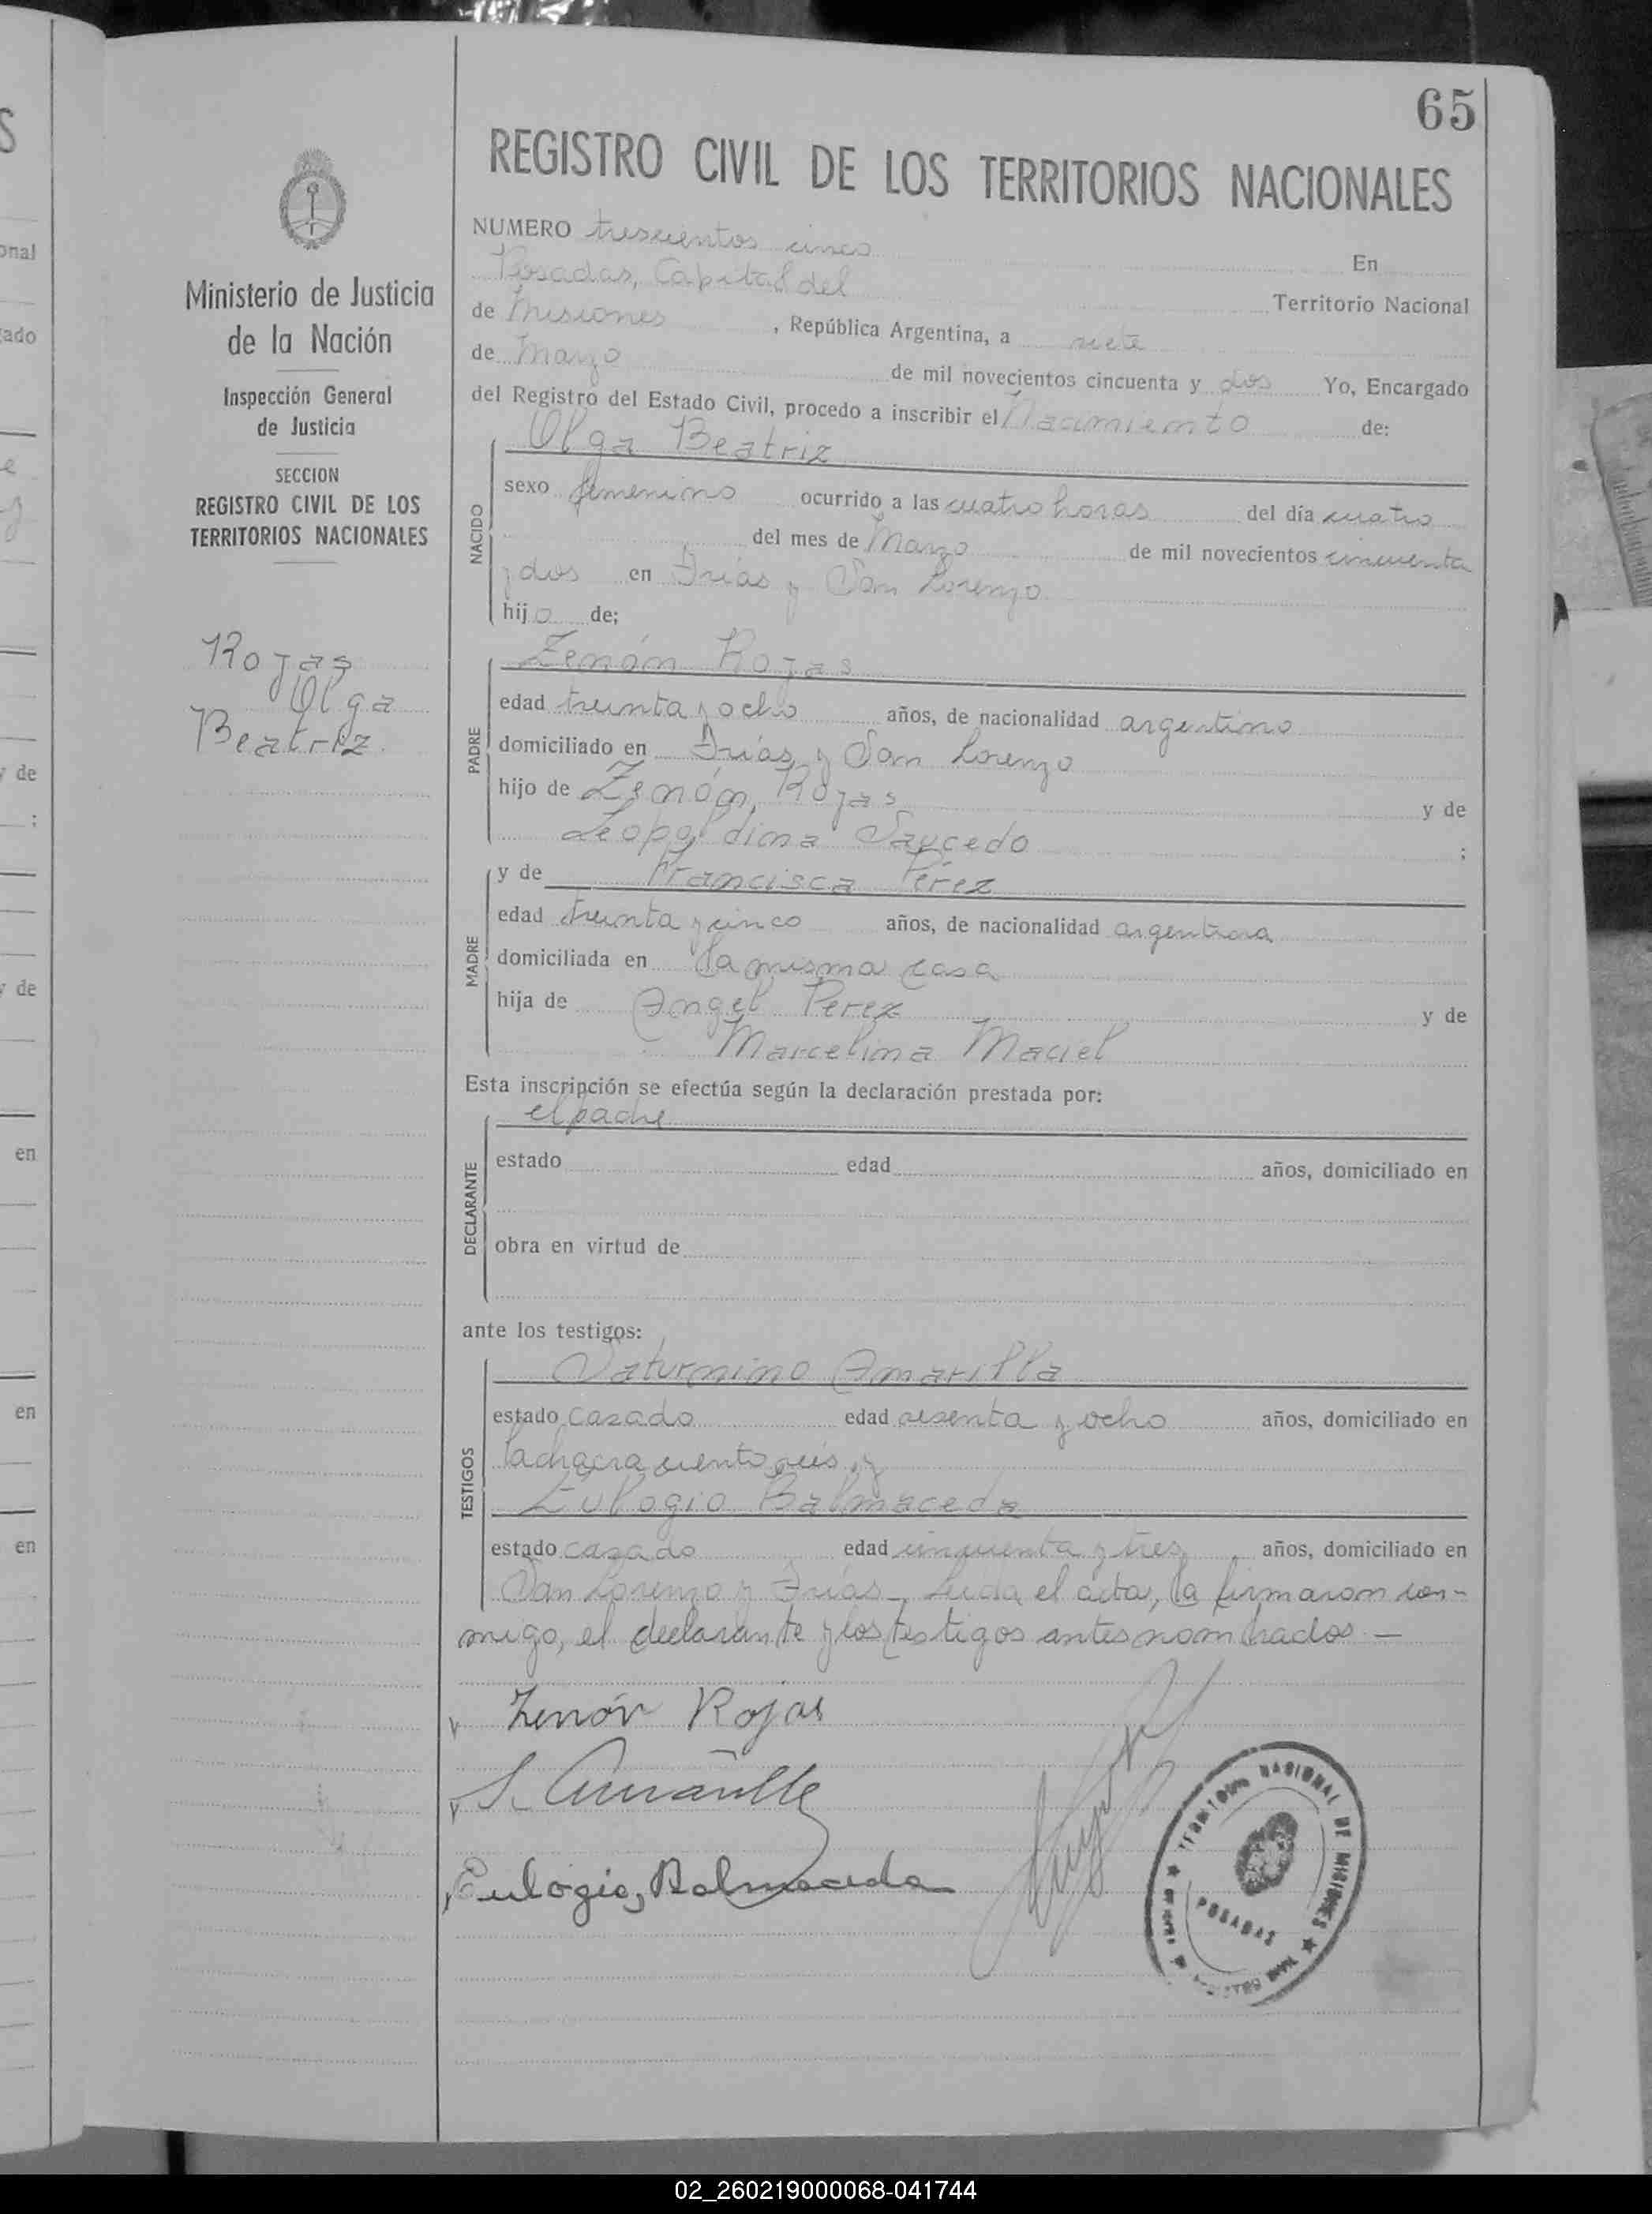 65
REGISTRO CIVIL DE LOS TERRITORIOS NACIONALES
Ministerio de Justicia
de la Nación
Inspección General
de Justicia
SECCION
REGISTRO CIVIL DE LOS
TERRITORIOS NACIONALES
Rojas
Olga
Beatriz.
NUMERO trescientos cinco
En
Posadas, Capital del Territorio Nacional
de Misiones, República Argentina, a siete
de Marzo de mil novecientos cincuenta y dos Yo, Encargado
del Registro del Estado Civil, procedo a inscribir el Nacimiento de:
NACIDO
Olga Beatriz
sexo femenino ocurrido a las cuatro horas del día cuatro
del mes de Marzo de mil novecientos cincuenta
y dos en Frías y San Lorenzo
hijo de;
PADRE
Zenón Rojas
edad treinta y ocho años, de nacionalidad argentino
domiciliado en Frías y San Lorenzo
hijo de Zenón Rojas y de
Leopoldina Saucedo ;
MADRE
y de Francisca Pérez
edad treinta y cinco años, de nacionalidad argentina
domiciliada en la misma casa
hija de Angel Perez y de
Marcelina Maciel
Esta inscripción se efectúa según la declaración prestada por:
DECLARANTE
el padre
estado edad años, domiciliado en
obra en virtud de
ante los testigos:
TESTIGOS
Saturnino Amarilla
estado casado edad sesenta y ocho años, domiciliado en
la chacra ciento seis y
Eulogio Balmaceda
estado casado edad cincuenta y tres años, domiciliado en
San Lorenzo y Frías - Leída el acta, la firmaron con-
migo, el declarante y los testigos antes nombrados —
Zenón Rojas
S. Amarilla
Eulogio, Balmaceda
TERRITORIO NACIONAL DE MISIONES
POSADAS
02_260219000068-041744